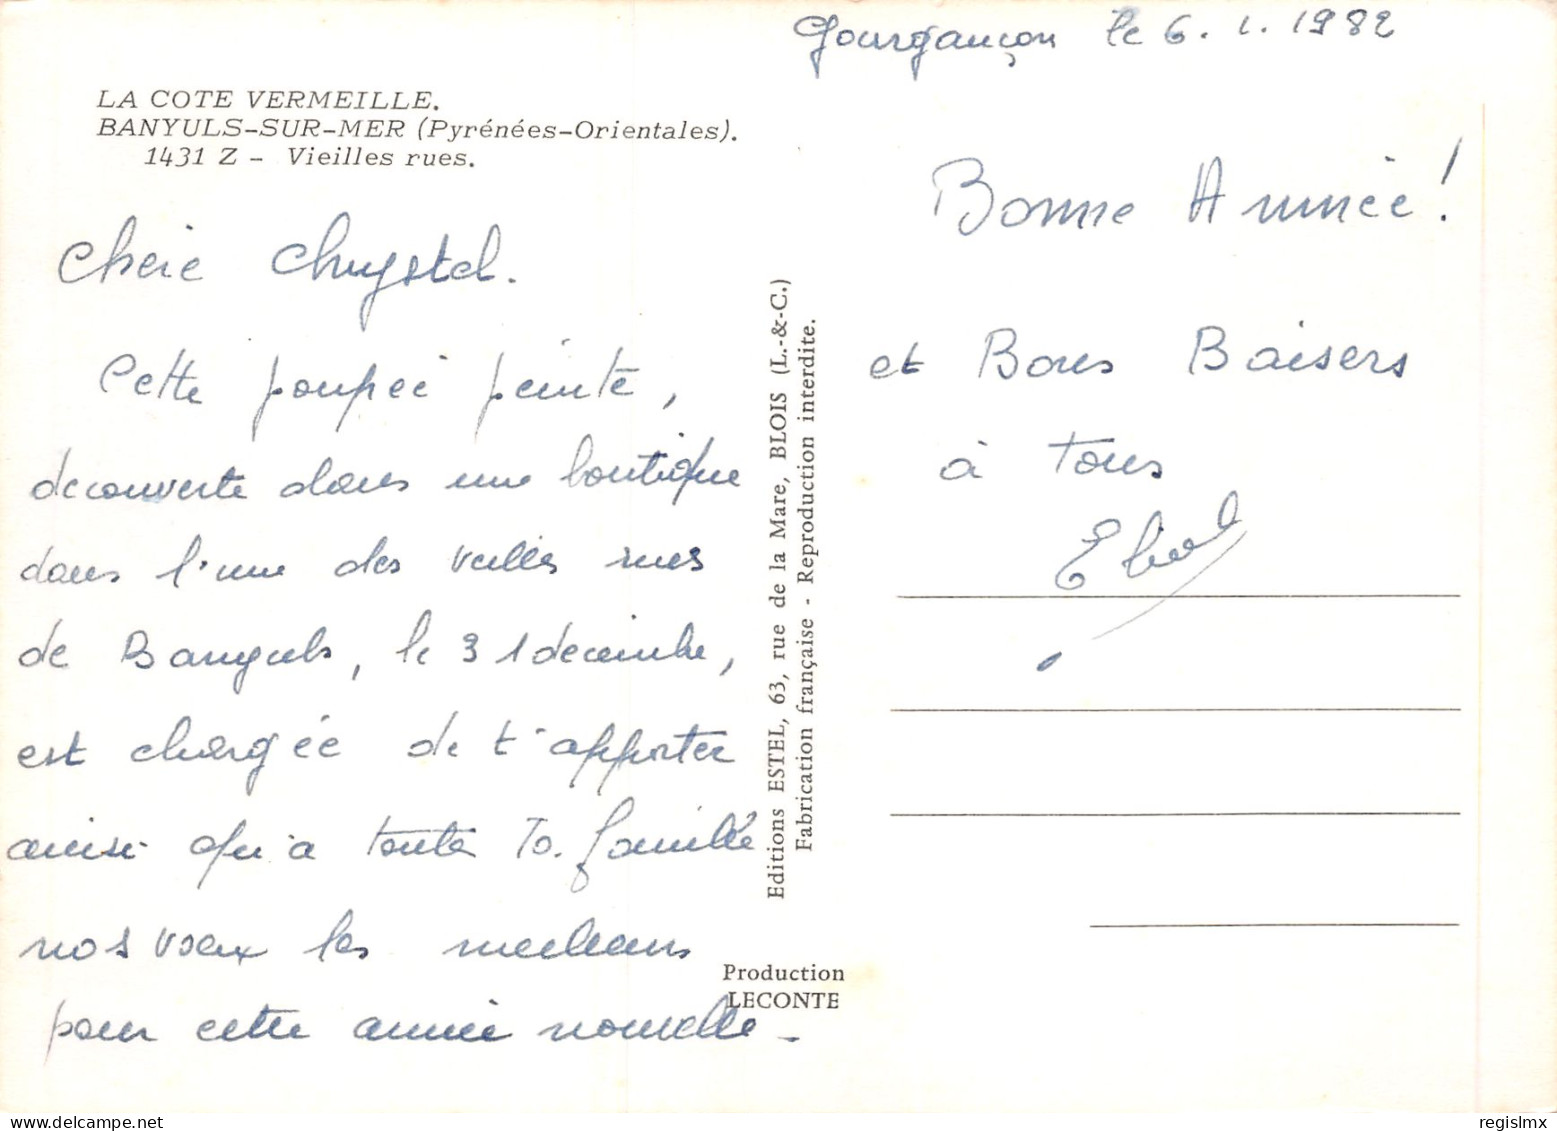 Gourgançon le 6. 1. 1982
LA COTE VERMEILLE.
BANYULS-SUR-MER (Pyrénées-Orientales).
1431 Z - Vieilles rues.
Chère Chrystel.
Cette poupée peinte,
découverte dans une boutique
dans l'une des vieilles rues
de Banyuls, le 31 décembre,
est chargée de t'apporter
ainsi qu'a toute ta famille
nos voeux les meilleurs
pour cette année nouvelle.
Bonne Année!
et Bons Baisers
à Tous
Editions ESTEL, 63, rue de la Mare, BLOIS (L.-&-C.)
Fabrication française - Reproduction interdite.
Production
LECONTE
regislmx